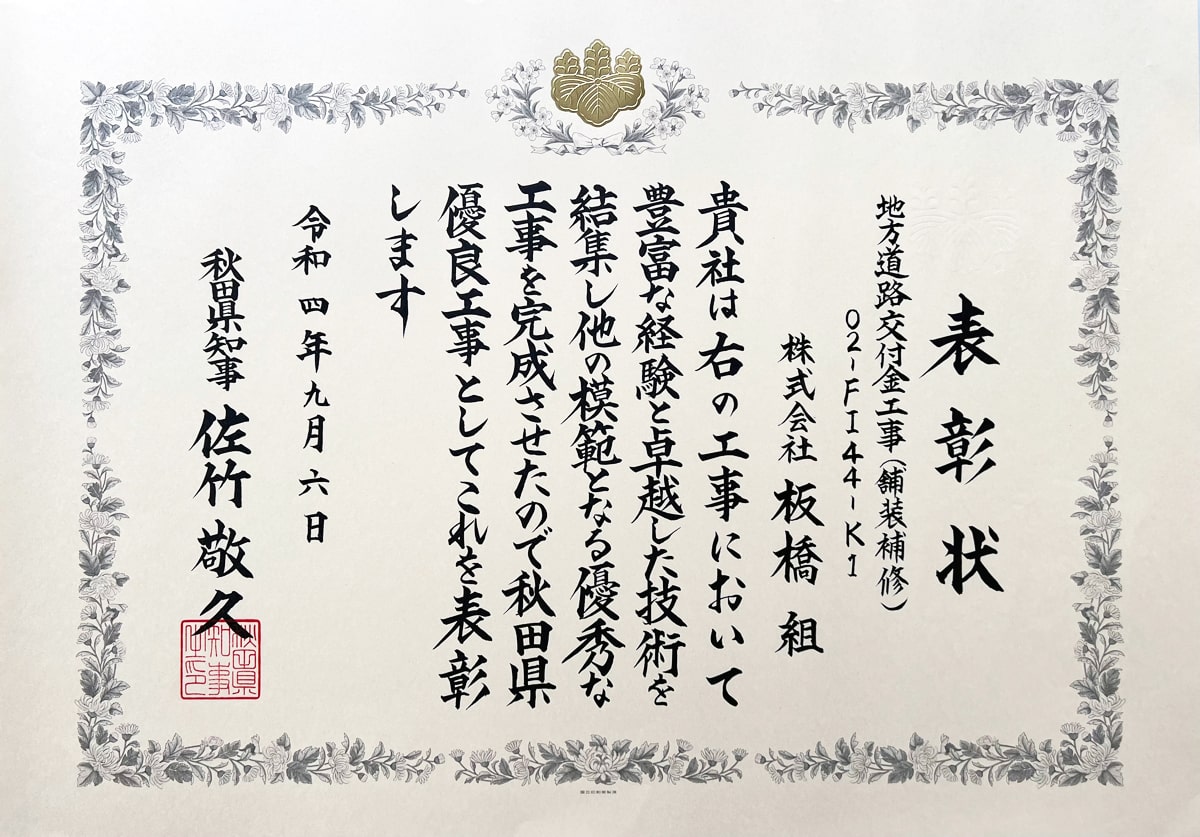 表彰状
地方道路交付金工事(舗装補修)
02-FI44-K1
株式会社 板橋 組
貴社は右の工事において
豊富な経験と卓越した技術を
結集し他の模範となる優秀な
工事を完成させたので秋田県
優良工事としてこれを表彰
します
令和四年九月六日
秋田県知事 佐竹敬久
秋田県
知事